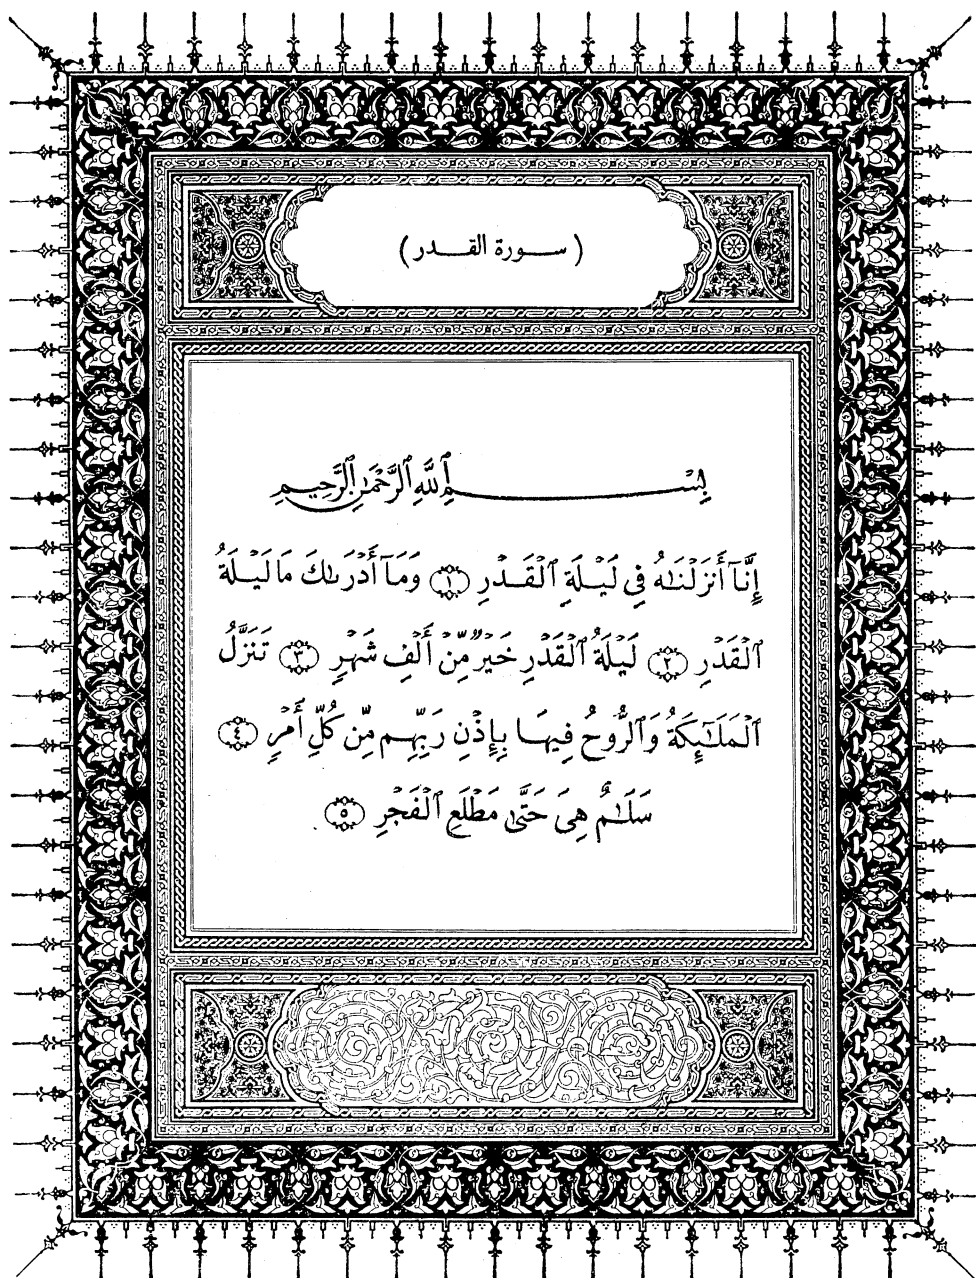 ( ســورة القــدر )
بِسْـــــــــمِ ٱللَّهِ ٱلرَّحْمَٰنِ ٱلرَّحِيمِ
إِنَّآ أَنزَلْنَٰهُ فِي لَيْلَةِ ٱلْقَدْرِ ۝١ وَمَآ أَدْرَىٰكَ مَا لَيْلَةُ
ٱلْقَدْرِ ۝٢ لَيْلَةُ ٱلْقَدْرِ خَيْرٌ مِّنْ أَلْفِ شَهْرٍ ۝٣ تَنَزَّلُ
ٱلْمَلَٰٓئِكَةُ وَٱلرُّوحُ فِيهَا بِإِذْنِ رَبِّهِم مِّن كُلِّ أَمْرٍ ۝٤
سَلَٰمٌ هِىَ حَتَّىٰ مَطْلَعِ ٱلْفَجْرِ ۝٥